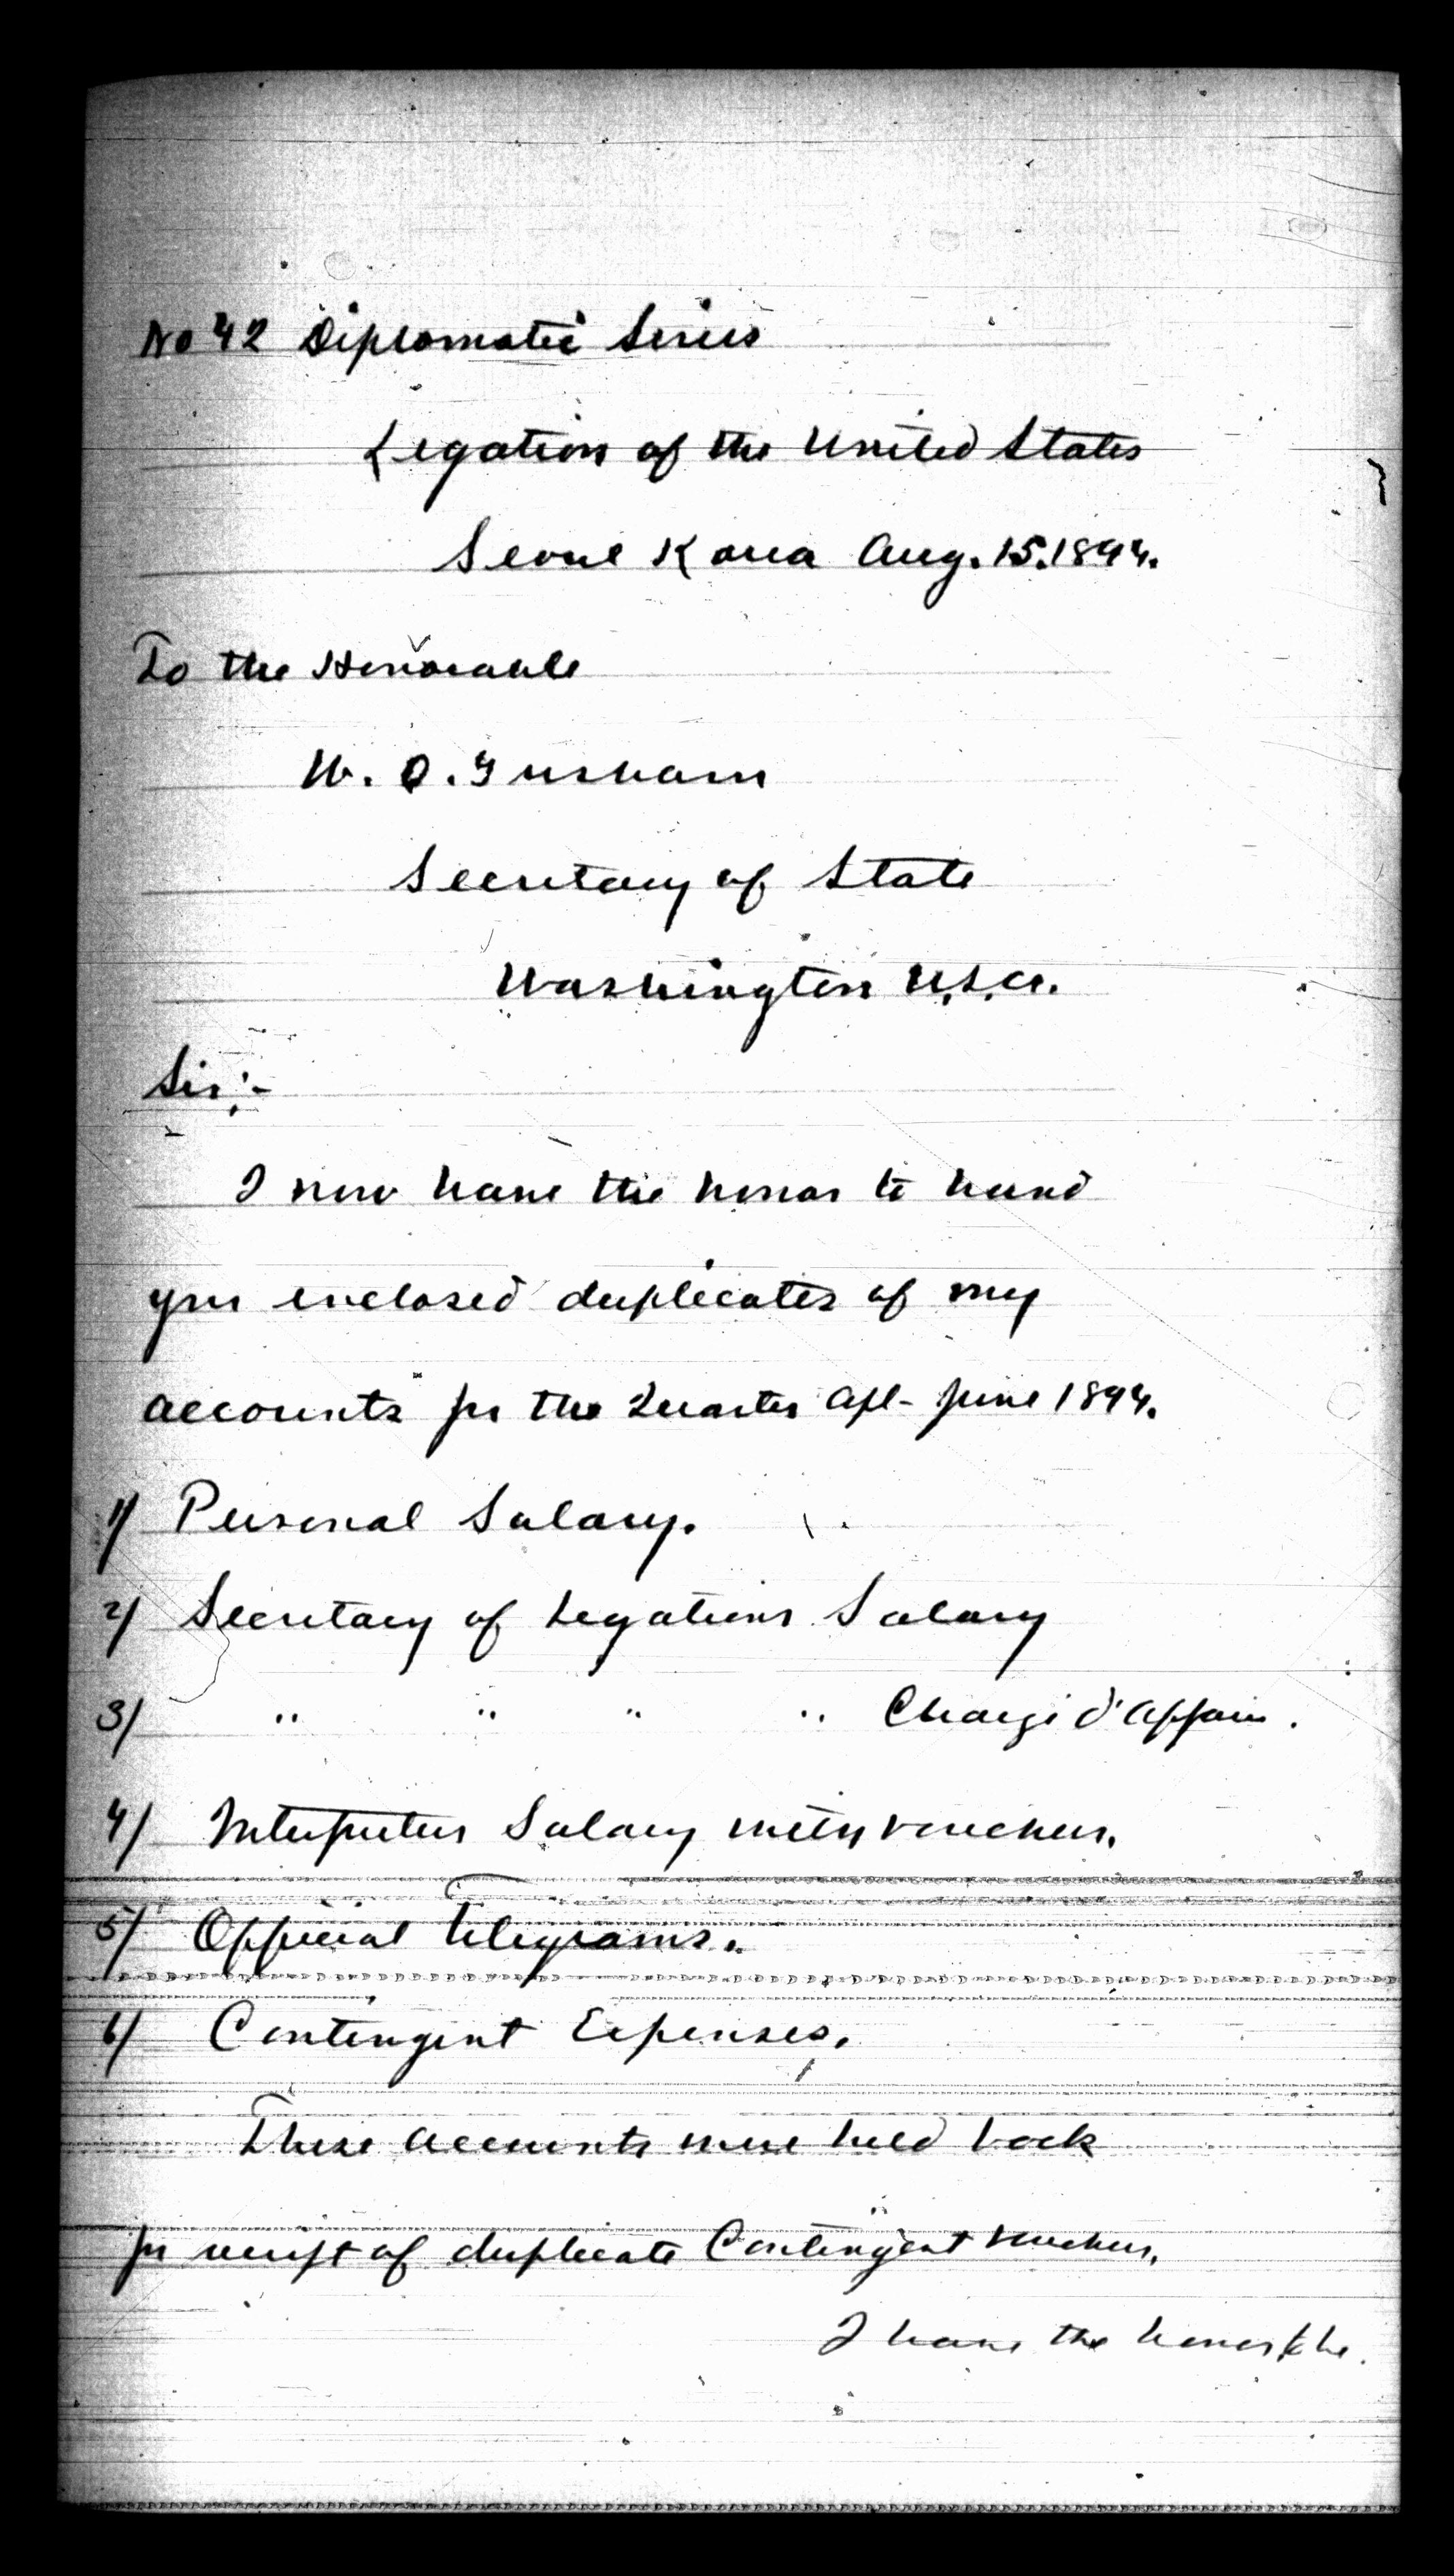 No 42 Diplomatic Series
Legation of the United States
Seoul Korea Aug. 15. 1894.
To the Honorable
W. Q. Gresham
Secretary of State
Washington U.S.A.
Sir:-
I now have the honor to hand
you enclosed duplicates of my
accounts for the Quarter Apl - June 1894.
1/ Personal Salary.
2/ Secretary of Legations Salary
3/ " " " " Chargé d'Affair.
4/ Interpreters Salary with vouchers.
5/ Official Telegrams.
6/ Contingent Expenses,
These accounts were held back
for receipt of duplicate Contingent vouchers,
I have the honor to be.